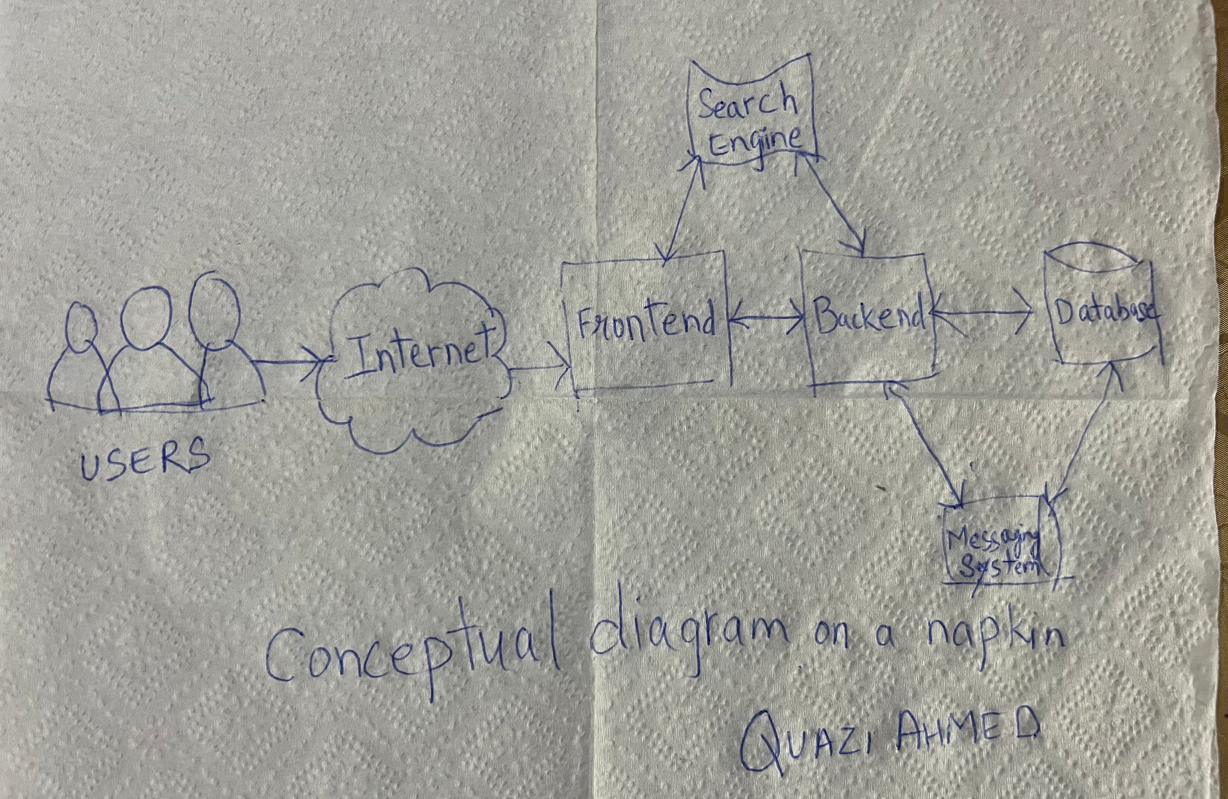 Search
Engine
Internet
Frontend
Backend
Database
USERS
Messaging
System
Conceptual diagram on a napkin
QUAZI AHMED